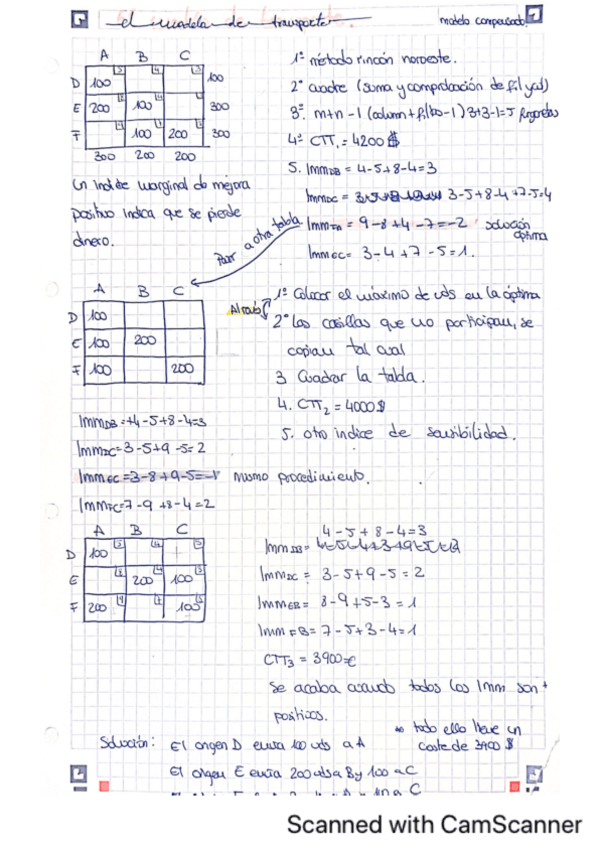 el modelo de transporte
modelo compensado.
A B C
5 4 3
D 100 100
8 4 3
E 200 100 300
9 7 5
F 100 200 300
300 200 200
1º método rincón noroeste.
2º cuadre (suma y comprobación de fil y col)
3º m+n-1 (column+filas-1) 3+3-1=5
4º CTT₁ = 4200 $
5. ImmDB = 4-5+8-4=3
ImmDC = 3-5+8-4+7-5=4
ImmFA = 9-8+4-7=-2 solución óptima
ImmEC = 3-4+7-5=1.
Un índice marginal de mejora
positivo indica que se pierde
dinero.
Pasar a otra tabla
A B C
D 100
E 100 200
F 100 200
1º Colocar el máximo de uds en la óptima
2º las casillas que no participan, se
copian tal cual
3 Cuadrar la tabla.
4. CTT₂ = 4000$
5. otro índice de sensibilidad.
ImmDB = +4-5+8-4=3
ImmDC=3-5+9-5=2
ImmEC=3-8+9-5=-1 mismo procedimiento.
ImmFC=7-9+8-4=2
A B C
5 4 3
D 100
8 4 3
E 200 100
9 7 5
F 200 100
4-5+8-4=3
ImmDB =
ImmDC = 3-5+9-5=2
ImmEB = 8-9+5-3=1
ImmFB = 7-5+3-4=1
CTT₃ = 3900€
Se acaba cuando todos los Imm son +
positivos.
todo ello tiene un
coste de 3900 $
Solución: El origen D envía 100 uds a A
El origen E envía 200 uds a B y 100 a C
Scanned with CamScanner